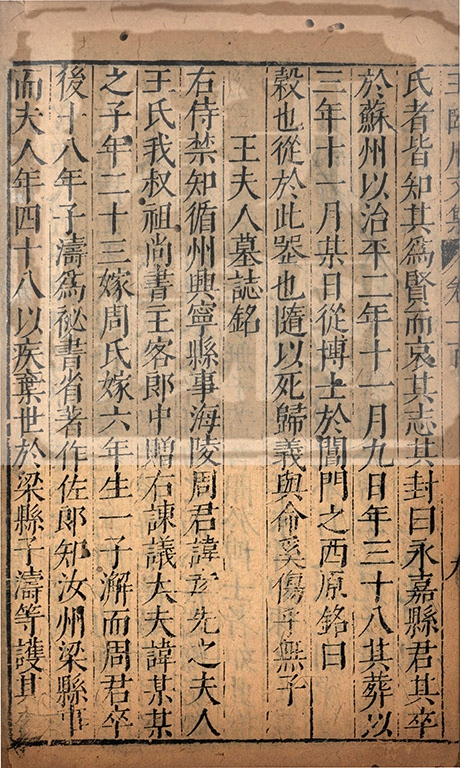 王臨川文集 卷一百 九
氏者皆知其為賢而哀其志其封曰永嘉縣君其卒
於蘇州以治平二年十一月九日年三十八其葬以
三年十一月某日從博士於閶門之西原銘曰
榖也從於此器也隨以死歸義與命奚傷乎無子
王夫人墓誌銘
右侍禁知循州興寧縣事海陵周君諱彥先之夫人
王氏我叔祖尚書主客郎中贈右諫議大夫諱某某
之子年二十三嫁周氏嫁六年生一子澥而周君卒
後十八年子濤為祕書省著作佐郎知汝州梁縣事
而夫人年四十八以疾棄世於梁縣子濤等護其